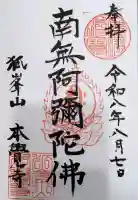 奉拜
令和八年八月七日
南無阿彌陀佛
狐峯山
本覺寺